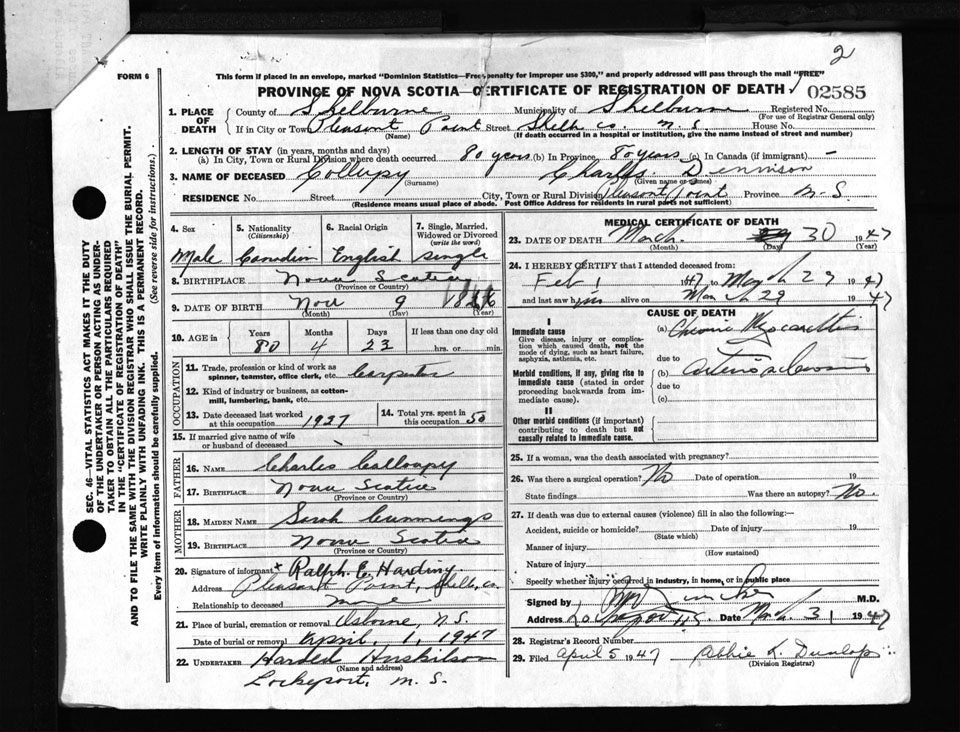 2
FORM 6
This form if placed in an envelope, marked "Dominion Statistics—Free—penalty for improper use $300," and properly addressed will pass through the mail "FREE"
PROVINCE OF NOVA SCOTIA—CERTIFICATE OF REGISTRATION OF DEATH 02585
1. PLACE OF DEATH County of Shelburne Municipality of Shelburne Registered No. (For use of Registrar General only)
If in City or Town Pleasant Point (Name) Street Shelb. Co. N.S. House No.
(If death occurred in a hospital or institution, give the name instead of street and number)
2. LENGTH OF STAY (in years, months and days)
(a) In City, Town or Rural Division where death occurred 80 years (b) In Province 80 years (c) In Canada (if immigrant) –
3. NAME OF DECEASED Collupy (Surname) Charles Dennison (Given name or names)
RESIDENCE No. Street City, Town or Rural Division Pleasant Point Province N.S.
(Residence means usual place of abode. Post Office Address for residents in rural parts not sufficient)
4. Sex Male
5. Nationality (Citizenship) Canadian
6. Racial Origin English
7. Single, Married, Widowed or Divorced (write the word) single
8. BIRTHPLACE Nova Scotia (Province or Country)
9. DATE OF BIRTH Nov (Month) 9 (Day) 1866 (Year)
10. AGE in Years 80 Months 4 Days 23 If less than one day old hrs. or min.
OCCUPATION
11. Trade, profession or kind of work as spinner, teamster, office clerk, etc. Carpenter
12. Kind of industry or business, as cotton-mill, lumbering, bank, etc.
13. Date deceased last worked at this occupation 1927
14. Total yrs. spent in this occupation 50
15. If married give name of wife or husband of deceased
FATHER
16. NAME Charles Colloupy
17. BIRTHPLACE Nova Scotia (Province or Country)
MOTHER
18. MAIDEN NAME Sarah Cummings
19. BIRTHPLACE Nova Scotia (Province or Country)
20. Signature of informant x Ralph E. Harding
Address Pleasant Point, Shelb. Co.
Relationship to deceased
21. Place of burial, cremation or removal Osborne, N.S.
Date of burial or removal April, 1, 1947
22. UNDERTAKER Harold Huskilson (Name and address)
Lockeport, N.S.
MEDICAL CERTIFICATE OF DEATH
23. DATE OF DEATH March (Month) 30 (Day) 1947 (Year)
24. I HEREBY CERTIFY that I attended deceased from:
Feb 1 1947 to March 29 1947
and last saw him alive on March 29 1947
CAUSE OF DEATH
I
Immediate cause
Give disease, injury or complication which caused death, not the mode of dying, such as heart failure, asphyxia, asthenia, etc.
(a) Chronic Myocarditis
due to
Morbid conditions, if any, giving rise to immediate cause (stated in order proceeding backwards from immediate cause).
(b) arteriosclerosis
due to
(c)
II
Other morbid conditions (if important) contributing to death but not causally related to immediate cause.
25. If a woman, was the death associated with pregnancy?
26. Was there a surgical operation? No Date of operation 19
State findings Was there an autopsy? No.
27. If death was due to external causes (violence) fill in also the following:—
Accident, suicide or homicide? (State which) Date of injury 19
Manner of injury (How sustained)
Nature of injury
Specify whether injury occurred in industry, in home, or in public place
Signed by M.D.
Address Date March 31 1947
28. Registrar's Record Number
29. Filed April 5 1947 Abbie K. Dunlop (Division Registrar)
SEC. 46—VITAL STATISTICS ACT MAKES IT THE DUTY
OF THE UNDERTAKER OR PERSON ACTING AS UNDER-
TAKER TO OBTAIN ALL THE PARTICULARS REQUIRED
IN THE "CERTIFICATE OF REGISTRATION OF DEATH"
AND TO FILE THE SAME WITH THE DIVISION REGISTRAR WHO SHALL ISSUE THE BURIAL PERMIT.
WRITE PLAINLY WITH UNFADING INK. THIS IS A PERMANENT RECORD.
Every item of Information should be carefully supplied. (See reverse side for instructions.)